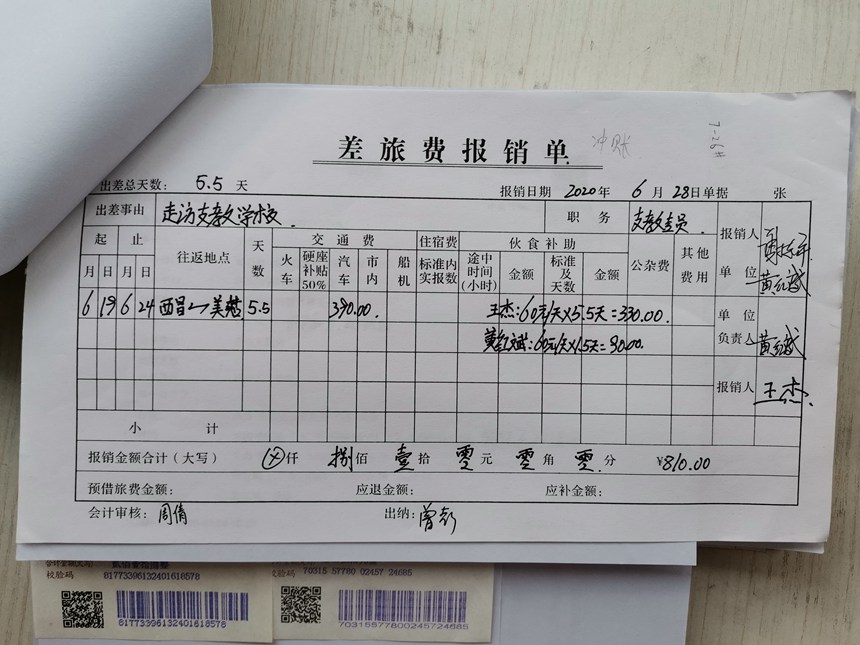 差旅费报销单 冲账
7-26#
出差总天数: 5.5 天 报销日期 2020年 6 月 28日单据 张
出差事由 走访支教学校. 职务 报销人
起 止 往返地点 天数 交通费 住宿费 伙食补助 公杂费 其他费用 单位
月 日 月 日 火车 硬座补贴50% 汽车 市内 船机 标准内实报数 途中时间(小时) 金额 标准及天数 金额 黄红斌
6 19 6 24 西昌 美姑 5.5 390.00. 王杰:60元/天×5.5天=330.00. 单位
黄红斌:60元/天×1.5天=90.00. 负责人 黄红斌
报销人 王杰.
小计
报销金额合计(大写) ⊗仟 捌佰 壹拾 零元 零角 零分 ¥810.00
预借旅费金额: 应退金额: 应补金额:
会计审核: 周倩 出纳: 曾彭
校验码 61773396132401618578 70315 57780 02457 24685
校验码
61773396132401618578 70315577800245724685